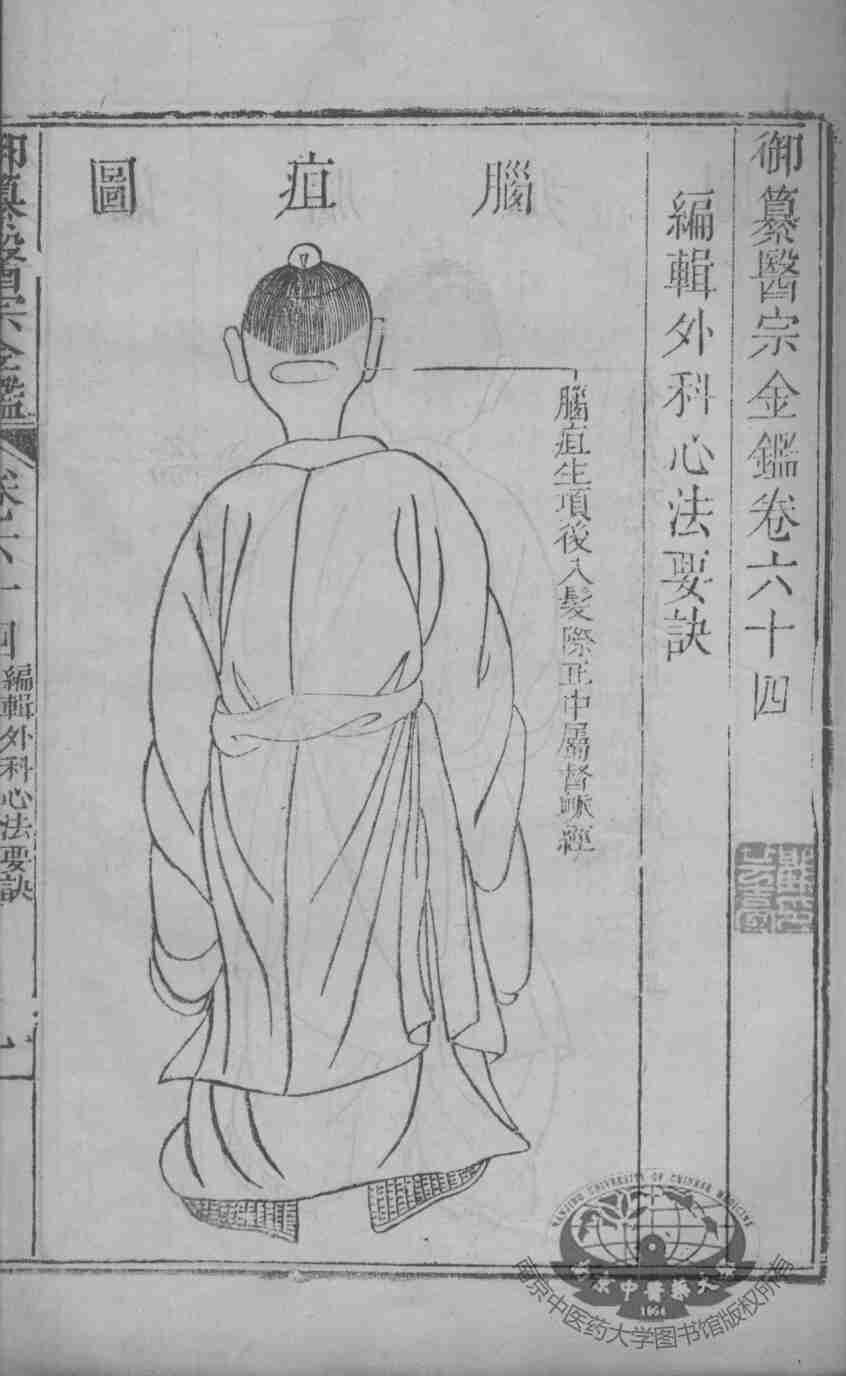 御纂醫宗金鑑卷六十四
編輯外科心法要訣
腦疽圖
腦疽生項後入髮際正中屬督脈經
御纂醫宗金鑑
卷六十四
編輯外科心法要訣
NANJING UNIVERSITY OF CHINESE MEDICINE
南京中醫藥大學
南京中医药大学图书馆版权所有